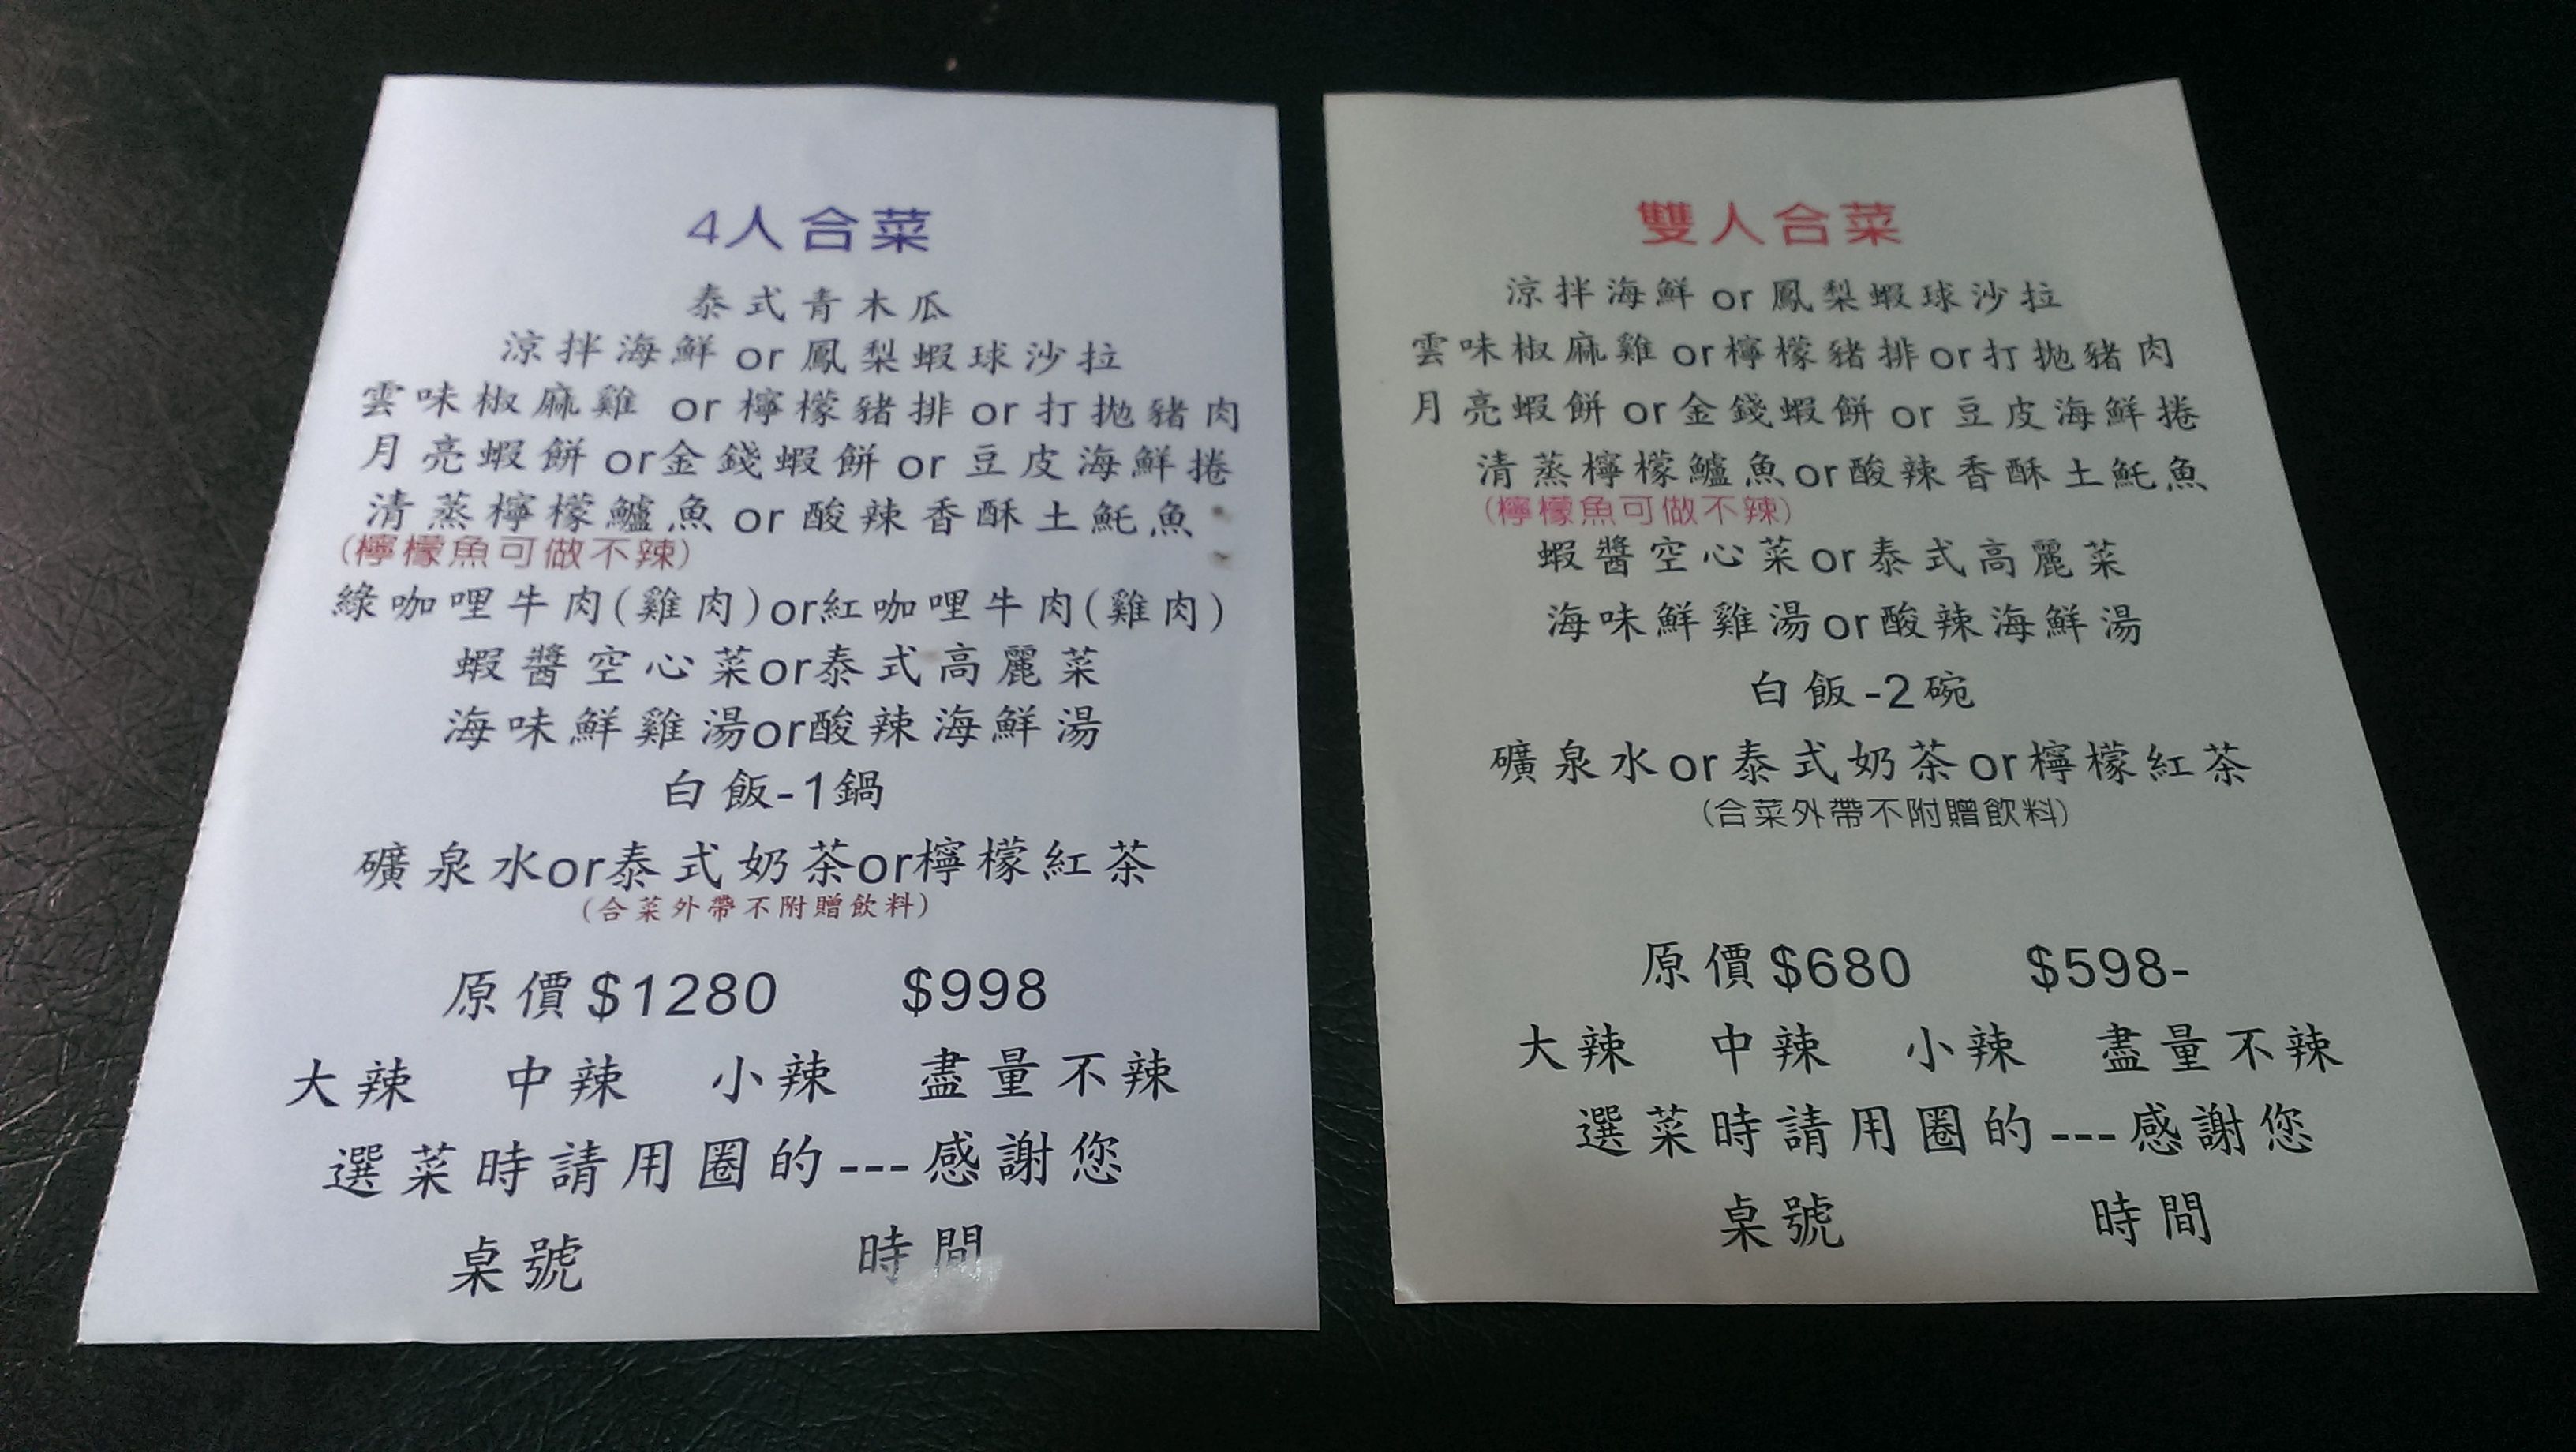 4人合菜
泰式青木瓜
涼拌海鮮 or 鳳梨蝦球沙拉
雲味椒麻雞 or 檸檬豬排 or 打拋豬肉
月亮蝦餅 or 金錢蝦餅 or 豆皮海鮮捲
清蒸檸檬鱸魚 or 酸辣香酥土魠魚
(檸檬魚可做不辣)
綠咖哩牛肉(雞肉)or紅咖哩牛肉(雞肉)
蝦醬空心菜or泰式高麗菜
海味鮮雞湯or酸辣海鮮湯
白飯-1鍋
礦泉水or泰式奶茶or檸檬紅茶
(合菜外帶不附贈飲料)
原價$1280 $998
大辣 中辣 小辣 盡量不辣
選菜時請用圈的---感謝您
桌號 時間
雙人合菜
涼拌海鮮 or 鳳梨蝦球沙拉
雲味椒麻雞 or 檸檬豬排 or 打拋豬肉
月亮蝦餅 or 金錢蝦餅 or 豆皮海鮮捲
清蒸檸檬鱸魚or酸辣香酥土魠魚
(檸檬魚可做不辣)
蝦醬空心菜or泰式高麗菜
海味鮮雞湯or酸辣海鮮湯
白飯-2碗
礦泉水or泰式奶茶or檸檬紅茶
(合菜外帶不附贈飲料)
原價$680 $598-
大辣 中辣 小辣 盡量不辣
選菜時請用圈的---感謝您
桌號 時間